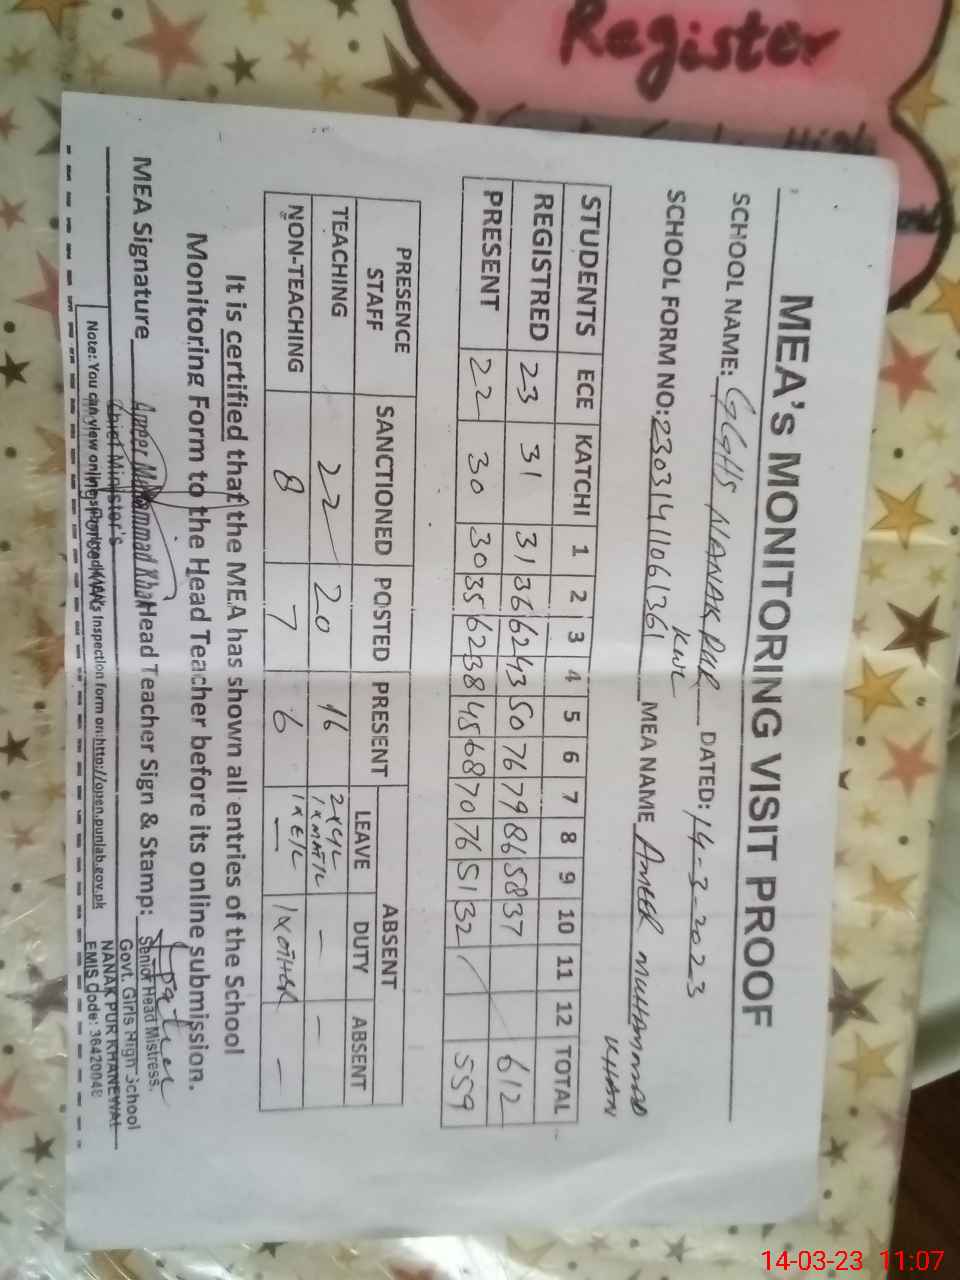 Register
MEA's MONITORING VISIT PROOF
SCHOOL NAME: GGHS NANAK PUR KWL DATED: 14-3-2023
SCHOOL FORM NO: 23031411061361 MEA NAME AMEER MUHAMMAD KHAN
STUDENTS ECE KATCHI 1 2 3 4 5 6 7 8 9 10 11 12 TOTAL
REGISTRED 23 31 31 36 62 43 50 76 79 86 58 37 612
PRESENT 22 30 30 35 62 38 45 68 70 76 51 32 559
PRESENCE STAFF SANCTIONED POSTED PRESENT ABSENT
LEAVE DUTY ABSENT
TEACHING 22 20 16 - -
NON-TEACHING 8 7 6 1xOTHER -
It is certified that the MEA has shown all entries of the School
Monitoring Form to the Head Teacher before its online submission.
MEA Signature Ameer Muhammad Khan Head Teacher Sign & Stamp:
Senior Head Mistress.
Govt. Girls High School
NANAK PUR KHANEWAL
EMIS Code: 36420048
Chief Minister's
Note: You can view online Inspection form on: http://open.punlab.gov.pk
14-03-23 11:07